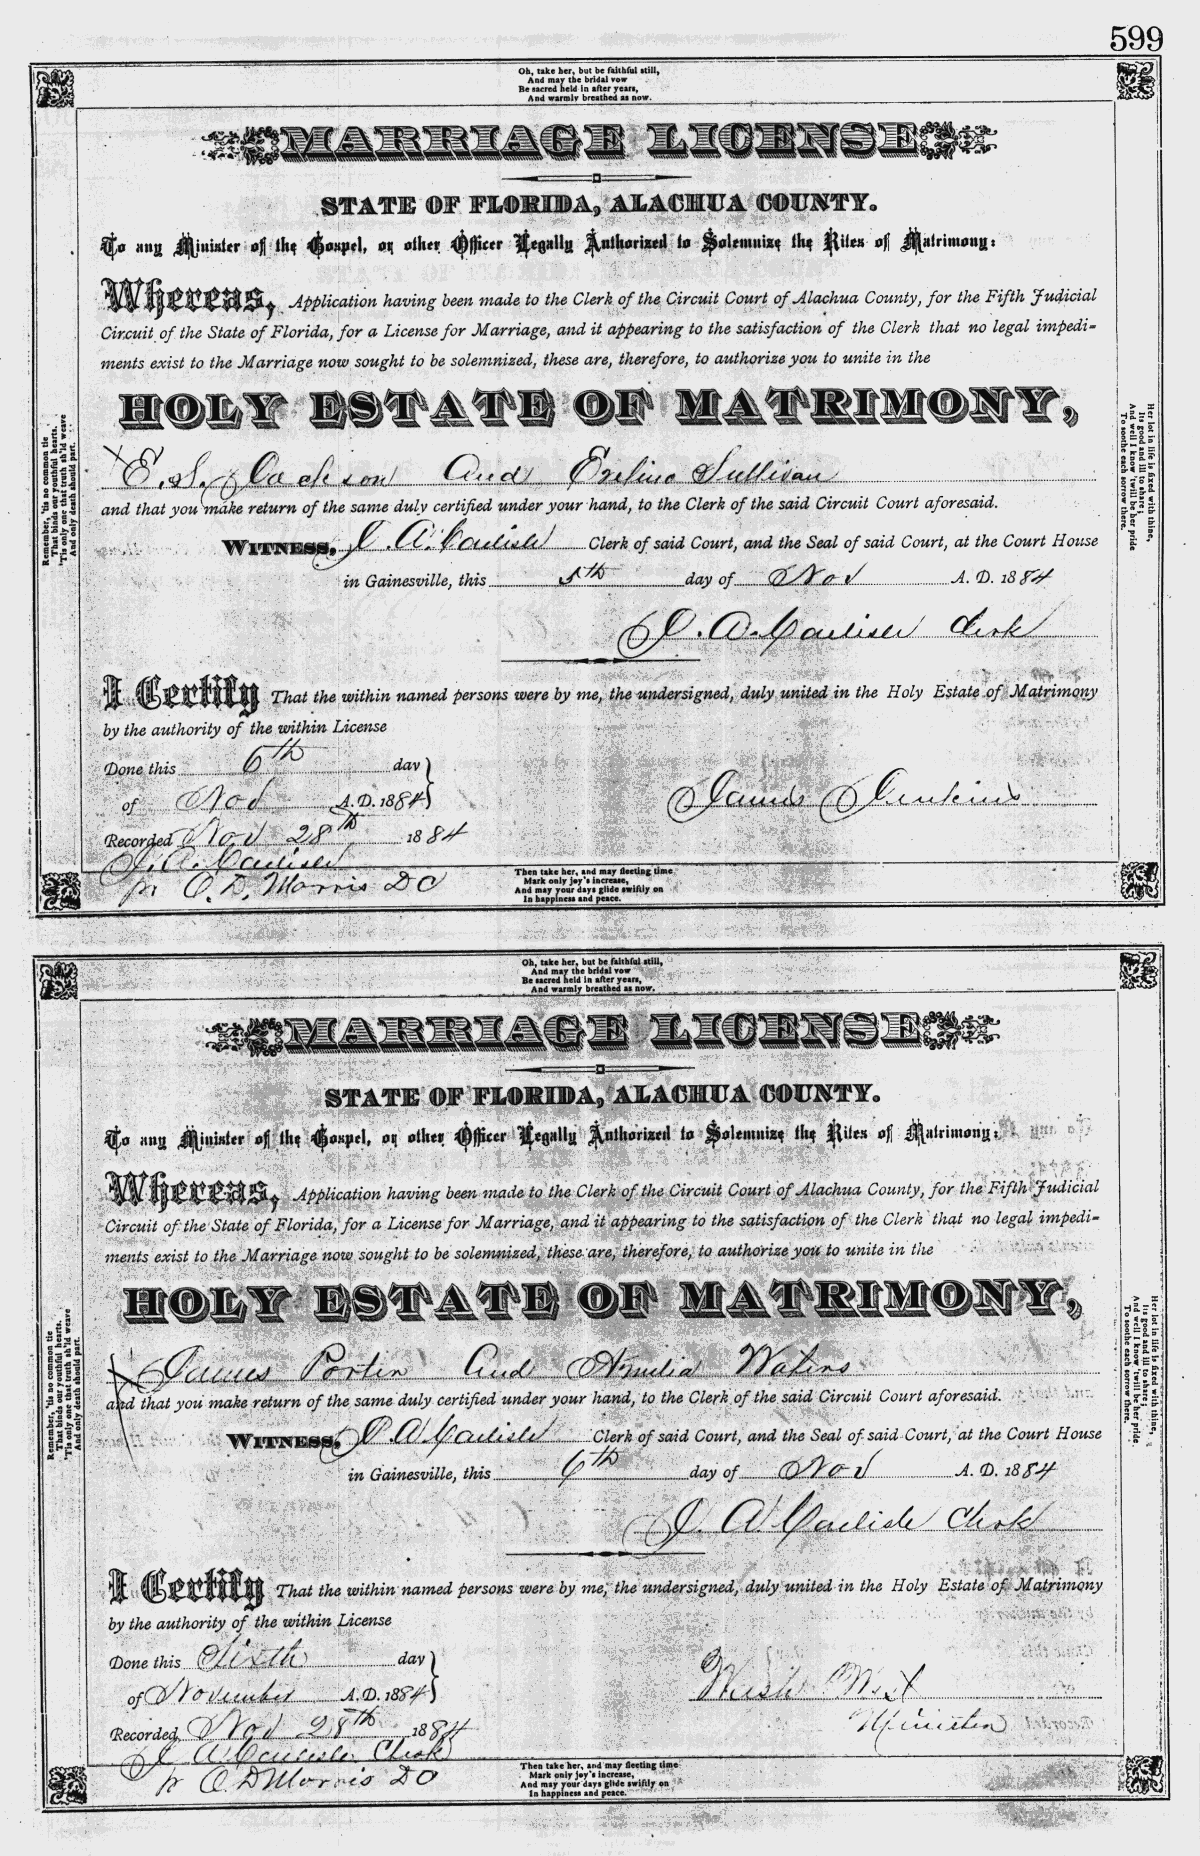 599
Oh, take her, but be faithful still,
And may the bridal vow
Be sacred held in after years,
And warmly breathed as now.
MARRIAGE LICENSE
STATE OF FLORIDA, ALACHUA COUNTY.
To any Minister of the Gospel, or other Officer Legally Authorized to Solemnize the Rites of Matrimony:
Whereas, Application having been made to the Clerk of the Circuit Court of Alachua County, for the Fifth Judicial
Circuit of the State of Florida, for a License for Marriage, and it appearing to the satisfaction of the Clerk that no legal impedi-
ments exist to the Marriage now sought to be solemnized, these are, therefore, to authorize you to unite in the
HOLY ESTATE OF MATRIMONY,
E. S. Jackson And Sullivan
and that you make return of the same duly certified under your hand, to the Clerk of the said Circuit Court aforesaid.
WITNESS, J. A. Carlisle Clerk of said Court, and the Seal of said Court, at the Court House
in Gainesville, this 5th day of Nov A. D. 1884
J. A. Carlisle Clerk
I Certify That the within named persons were by me, the undersigned, duly united in the Holy Estate of Matrimony
by the authority of the within License
Done this 6th day
of Nov A. D. 1884
James Jenkins
Recorded Nov 28th 1884
J. A. Carlisle
pr O. D. Morris D C
Remember, 'tis no common tie
That binds our youthful hearts.
'Tis only one that truth sh'ld weave
And only death should part.
Her lot in life is fixed with thine,
Its good and ill to share;
And well I know 'twill be her pride
To soothe each sorrow there.
Then take her, and may fleeting time
Mark only joy's increase,
And may your days glide swiftly on
In happiness and peace.
Oh, take her, but be faithful still,
And may the bridal vow
Be sacred held in after years,
And warmly breathed as now.
MARRIAGE LICENSE
STATE OF FLORIDA, ALACHUA COUNTY.
To any Minister of the Gospel, or other Officer Legally Authorized to Solemnize the Rites of Matrimony:
Whereas, Application having been made to the Clerk of the Circuit Court of Alachua County, for the Fifth Judicial
Circuit of the State of Florida, for a License for Marriage, and it appearing to the satisfaction of the Clerk that no legal impedi-
ments exist to the Marriage now sought to be solemnized, these are, therefore, to authorize you to unite in the
HOLY ESTATE OF MATRIMONY,
James Porter And Amelia Waters
and that you make return of the same duly certified under your hand, to the Clerk of the said Circuit Court aforesaid.
WITNESS, J. A. Carlisle Clerk of said Court, and the Seal of said Court, at the Court House
in Gainesville, this 6th day of Nov A. D. 1884
J. A. Carlisle Clerk
I Certify That the within named persons were by me, the undersigned, duly united in the Holy Estate of Matrimony
by the authority of the within License
Done this Sixth day
of November A. D. 1884
Minister
Recorded Nov 28th 1884
J A Carlisle Clerk
pr O. D Morris D C
Remember, 'tis no common tie
That binds our youthful hearts.
'Tis only one that truth sh'ld weave
And only death should part.
Her lot in life is fixed with thine,
Its good and ill to share;
And well I know 'twill be her pride
To soothe each sorrow there.
Then take her, and may fleeting time
Mark only joy's increase,
And may your days glide swiftly on
In happiness and peace.